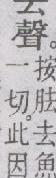 去聲。
按胠去魚
一切。此因